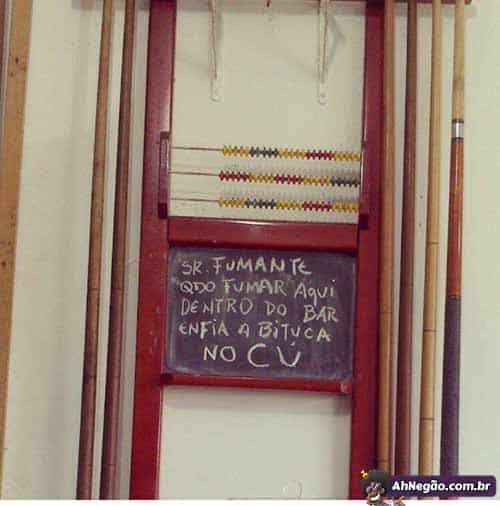 SR. FUMANTE
QDO FUMAR AQUI
DENTRO DO BAR
ENFIA A BITUCA
NO CÚ
AhNegão.com.br